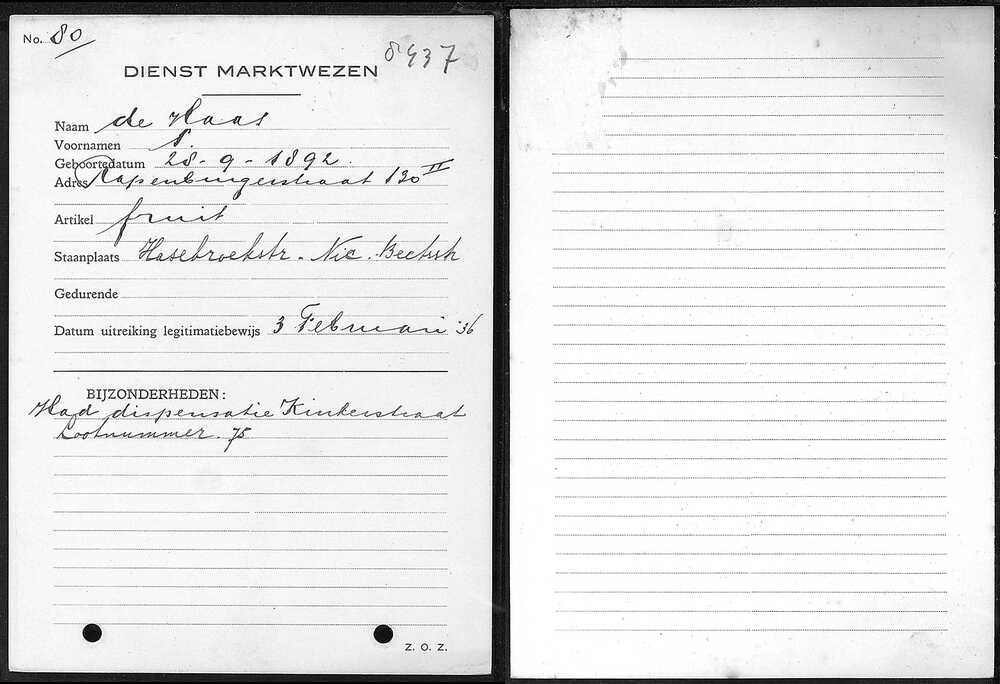 No. 80
8437
DIENST MARKTWEZEN
Naam de Haas
Voornamen S.
Geboortedatum 28-9-1892.
Adres Rapenburgerstraat 130 II
Artikel fruit
Staanplaats Hasebroekstr. Nic. Beetsstr
Gedurende
Datum uitreiking legitimatiebewijs 3 Februari '36
BIJZONDERHEDEN:
Had dispensatie Kinkerstraat
Lootnummer. 75
Z. O. Z.